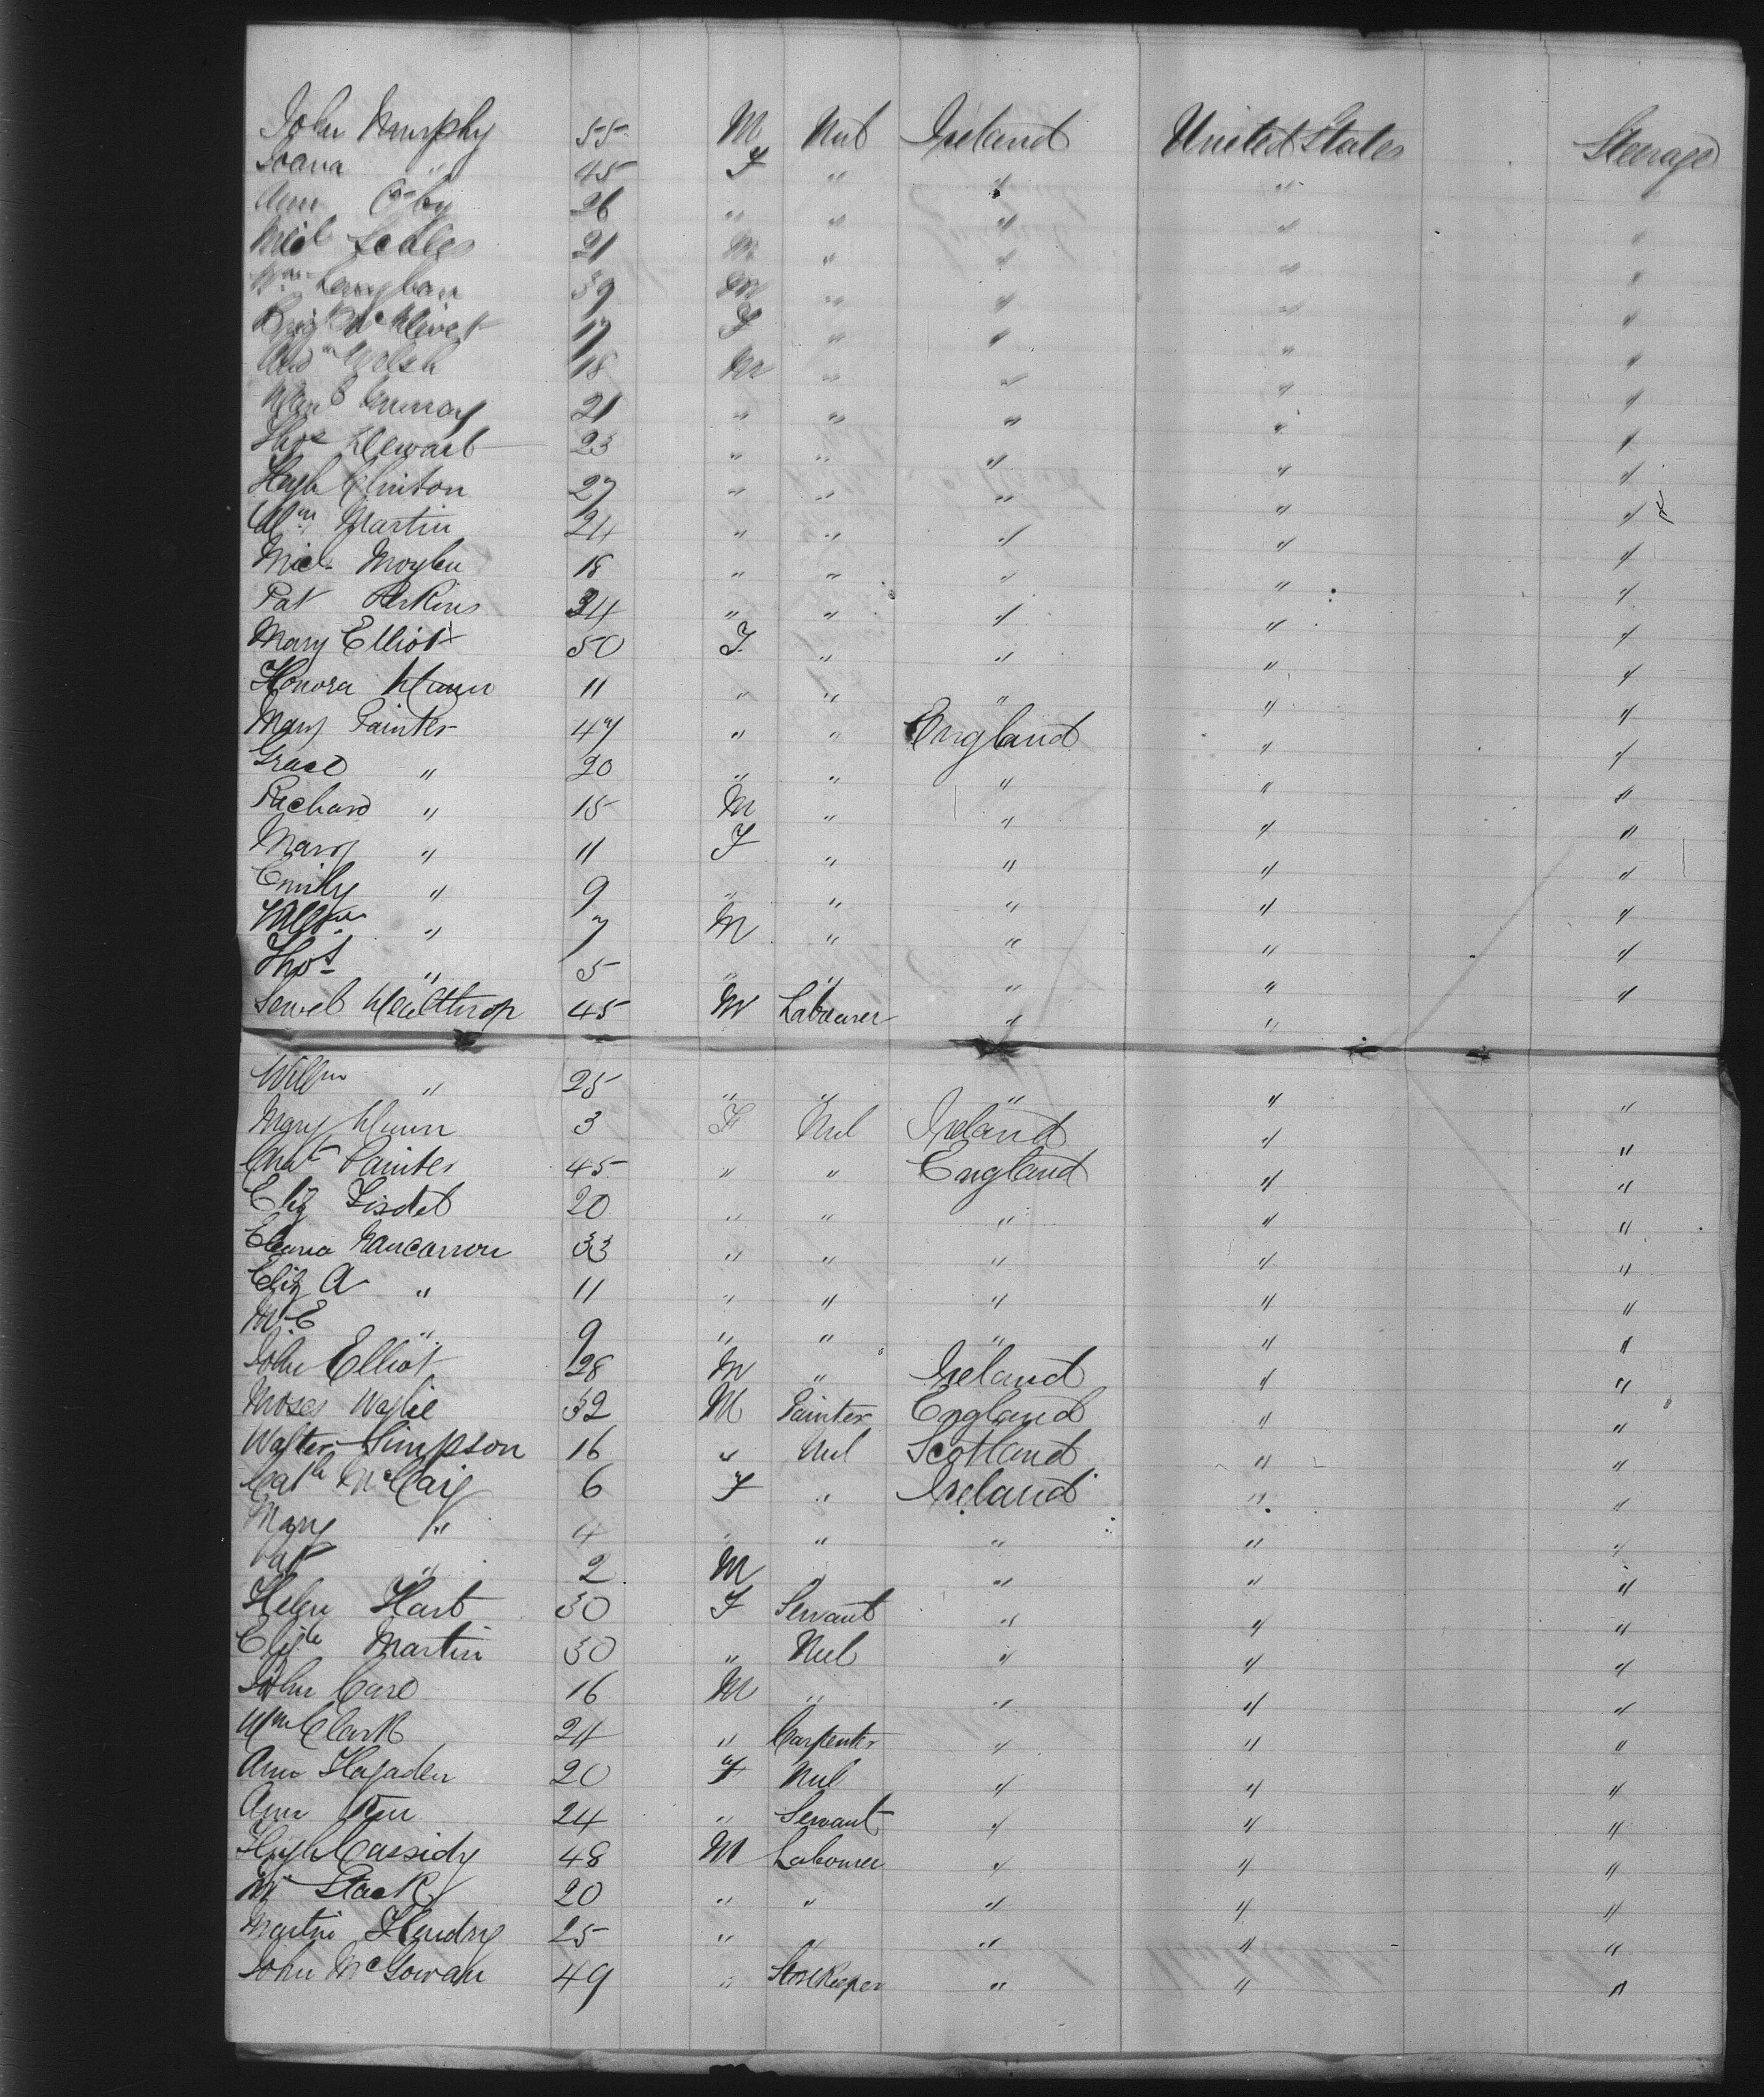 John Murphy 55 M Nul Ireland United States Steerage
Joana " 45 F " " "
Ann 26 " " " " "
Micl Scales 21 M " " " "
Wm 39 M " " " "
Brigt 17 F " " " "
And Welsh 18 M " " " "
Murray 21 " " " " "
Thos Stewart 23 " " " " "
Hugh Clinton 27 " " " " "
Wm Martin 24 " " " " "
Micl. 18 " " " " "
Pat Perkins 34 " " " " "
Mary Elliot 50 F " " " "
Honora 11 " " " " "
Mary Painter 47 " " England " "
Grace " 20 " " " " "
Richard " 15 M " " " "
Mary " 11 F " " " "
Emily " 9 " " " " "
Willm " 7 M " " " "
Thos " 5 " " " " "
45 M Labourer " "
Willm " 25 " " " " "
Mary 3 F Nul Ireland " "
Painter 45 " " England " "
Eliz 20 " " " " "
Nancarrow 33 " " " " "
Eliz A " 11 " " " " "
M. E " 9 " " " " "
John Elliot 28 M " Ireland " "
Moses Wylie 32 M Painter England " "
Walter Simpson 16 " Nul Scotland " "
Cath McCaig 6 F " Ireland " "
Mary " 4 " " " " "
Pat " 2 M " " " "
Helen Hart 30 F Servant " " "
Elizh Martin 30 " Nul " " "
John 16 M " " " "
Wm Clark 24 " Carpenter " " "
Ann 20 F Nul " " "
Ann 24 " Servant " " "
Hugh Cassidy 48 M Labourer " " "
Stack 20 " " " " "
Martin Hendry 25 " " " " "
John McGowan 49 " StoreKeeper " " "